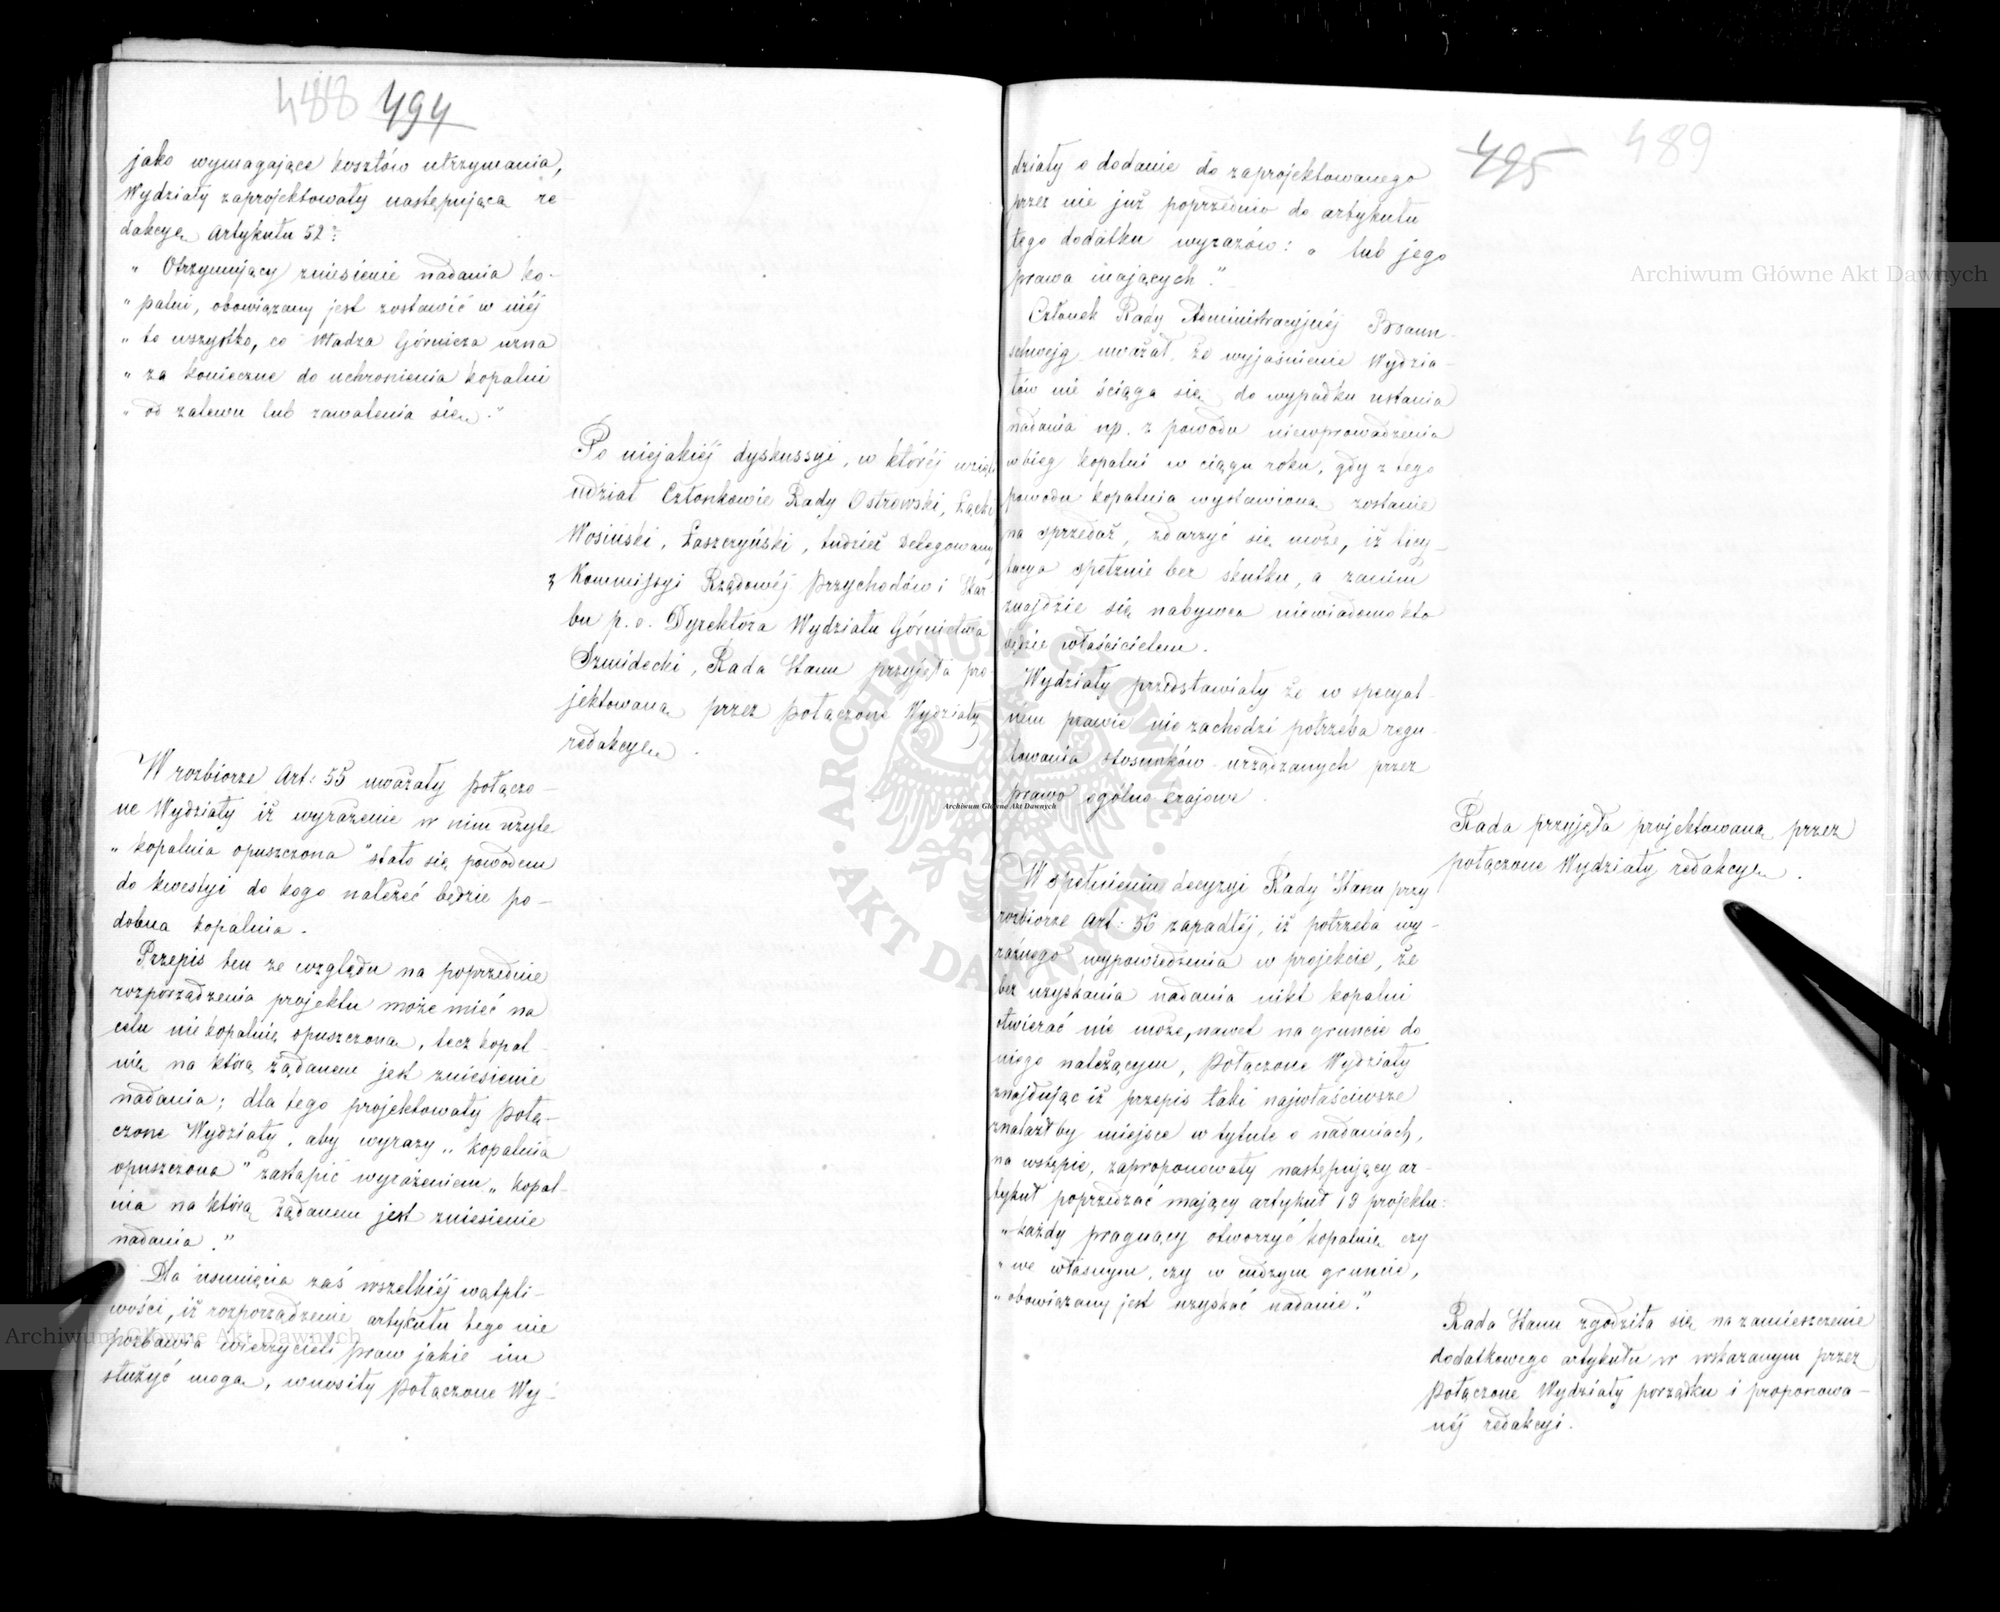 488 494
jako wymagające kosztów utrzymania,
Wydziały zaprojektowały następującą re-
dakcyę Artykułu 52:
„ Otrzymujący zniesienie nadania ko-
„ palni, obowiązany jest zostawić w niéj
„ to wszystko, co Władza Górnicza uzna
„ za konieczne do uchronienia kopalni
„ od zalewu lub zawalenia się."
Po niejakiéj dyskussyi, w któréj wzięli
udział Członkowie Rady Ostrowski, Łącki
Wosiński, Łaszczyński, tudzież Delegowany
z Kommissyi Rządowéj Przychodów i Skar-
bu p. o. Dyrektora Wydziału Górnictwa
Szmidecki, Rada Stanu przyjęła pro-
jektowaną przez Połączone Wydziały
redakcyę.
W rozbiorze Art: 55 uważały połączo-
ne Wydziały iż wyrażenie w nim użyte
„ kopalnia opuszczona" stało się powodem
do kwestyi do kogo należeć będzie po-
dobna kopalnia.
Przepis ten ze względu na poprzednie
rozporządzenia projektu może mieć na
celu nie kopalnię opuszczoną, lecz kopal-
nię na którą żądanem jest zniesienie
nadania; dla tego projektowały Połą-
czone Wydziały, aby wyrazy „ kopalnia
opuszczona" zastąpić wyrażeniem „ kopal-
nia na którą żądanem jest zniesienie
nadania."
Dla usunięcia zaś wszelkiéj wątpli-
wości, iż rozporządzenie artykułu tego nie
pozbawia wierzycieli praw jakie im
służyć mogą, wnosiły Połączone Wy-
495 489
działy o dodanie do zaprojektowanego
przez nie już poprzednio do artykułu
tego dodatku wyrazów: „ lub jego
prawa mających."
Członek Rady Administracyjnéj Braun-
schwejg uważał, że wyjaśnienie Wydzia-
łów nie ściąga się do wypadku ustania
nadania np. z powodu niewprowadzenia
w bieg kopalni w ciągu roku, gdy z tego
powodu kopalnia wystawioną zostanie
na sprzedaż, zdarzyć się może, iż licy-
tacya spełznie bez skutku, a zanim
znajdzie się nabywca niewiadomo kto
będzie właścicielem.
Wydziały przedstawiały że w specyal-
nem prawie nie zachodzi potrzeba regu-
lowania stosunków urządzanych przez
prawo ogólno krajowe.
Rada przyjęła projektowaną przez
połączone Wydziały redakcyę.
W spełnieniu decyzyi Rady Stanu przy
rozbiorze Art: 56 zapadłéj, iż potrzeba wy-
raźnego wypowiedzenia w projekcie, że
bez uzyskania nadania nikt kopalni
otwierać nie może, nawet na gruncie do
niego należącym, Połączone Wydziały
znajdując iż przepis taki najwłaściwsze
znalazłby miejsce w tytule o nadaniach,
na wstępie, zaproponowały następujący ar-
tykuł poprzedzać mający artykuł 19 projektu:
„ każdy pragnący otworzyć kopalnię czy
„ we własnym, czy w cudzym gruncie,
„ obowiązany jest uzyskać nadanie."
Rada Stanu zgodziła się na zamieszczenie
dodatkowego artykułu w wskazanym przez
Połączone Wydziały porządku i proponowa-
néj redakcyi.
Archiwum Główne Akt Dawnych
Archiwum Główne Akt Dawnych
Archiwum Główne Akt Dawnych
ARCHIWUM GŁÓWNE • AKT DAWNYCH •